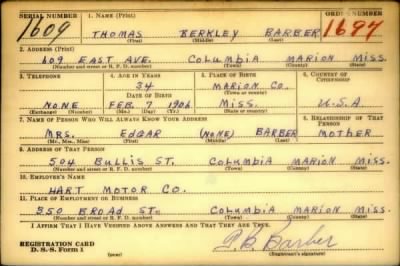 SERIAL NUMBER 1. NAME (Print) ORDER NUMBER
1609 THOMAS BERKLEY BARBER 1697
(First) (Middle) (Last)
2. ADDRESS (Print)
609 EAST AVE. COLUMBIA MARION MISS.
(Number and street or R. F. D. number) (Town) (County) (State)
3. TELEPHONE 4. AGE IN YEARS 5. PLACE OF BIRTH 6. COUNTRY OF CITIZENSHIP
34 MARION CO.
DATE OF BIRTH
NONE FEB. 7 1906 MISS. U.S.A
(Exchange) (Number) (Mo.) (Day) (Yr.) (State or country)
7. NAME OF PERSON WHO WILL ALWAYS KNOW YOUR ADDRESS 8. RELATIONSHIP OF THAT PERSON
MRS. EDGAR (NONE) BARBER MOTHER
(Mr., Mrs., Miss) (First) (Middle) (Last)
9. ADDRESS OF THAT PERSON
504 BULLIS ST. COLUMBIA MARION MISS.
(Number and street or R. F. D. number) (Town) (County) (State)
10. EMPLOYER'S NAME
HART MOTOR CO.
11. PLACE OF EMPLOYMENT OR BUSINESS
550 BROAD ST. COLUMBIA MARION MISS.
(Number and street or R. F. D. number) (Town) (County) (State)
I AFFIRM THAT I HAVE VERIFIED ABOVE ANSWERS AND THAT THEY ARE TRUE.
REGISTRATION CARD
D. S. S. Form 1 T.B Barber
(over) (Registrant's signature)